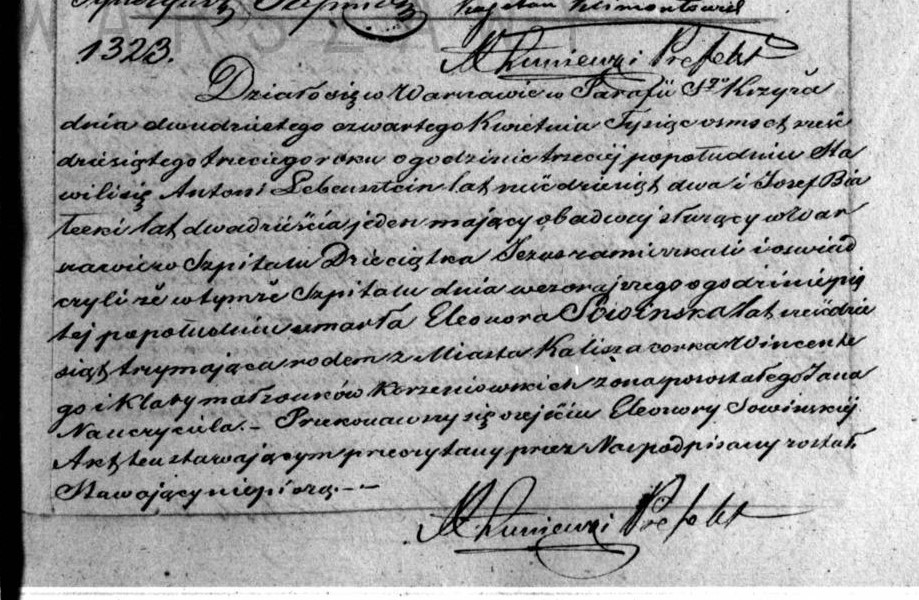 1323.
Działo się w Warszawie w Parafii Sgo Krzyża
dnia dwudziestego czwartego Kwietnia Tysiąc osmset sześć
dziesiątego trzeciego roku o godzinie trzeciej popołudniu Sta
wili się Antoni Lebensztein lat sześćdziesiąt dwa i Jozef Bia
łecki lat dwadzieścia jeden mający obadwaj służący w War
szawie w Szpitalu Dzieciątka Jezus zamieszkali i oświad
czyli że w tymże Szpitalu dnia wczorajszego o godzinie pią
tej popołudniu umarła Eleonora Sowinska lat sześćdzie
siąt trzy mająca rodem z Miasta Kalisza corka Wincente
go i Klary małżonków Korzeniowskich żona pozostałego Jana
Nauczyciela. – Przekonawszy się o zejściu Eleonory Sowinskiej
Akt ten stawającym przeczytany przez Nas podpisany został
Stawający nie piszą. – –